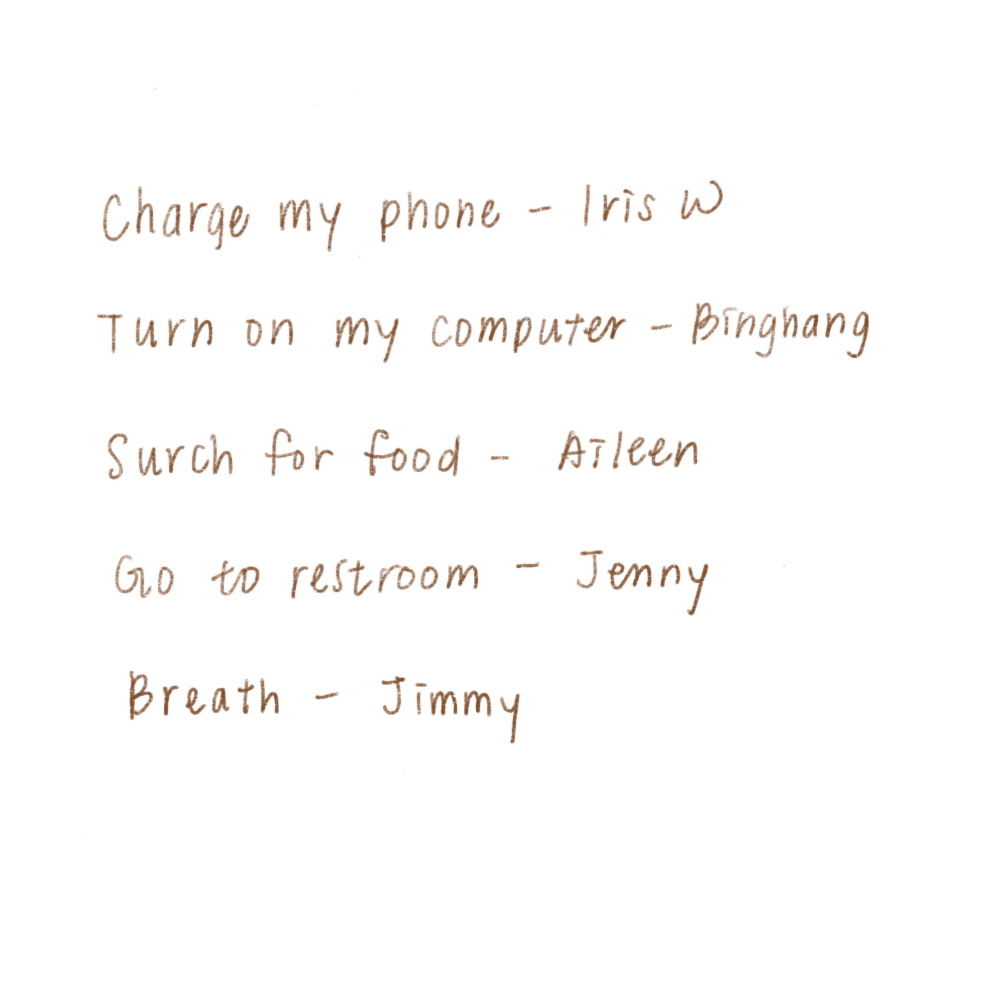 Charge my phone - Iris W
Turn on my computer - Binghang
Surch for food - Aileen
Go to restroom - Jenny
Breath - Jimmy